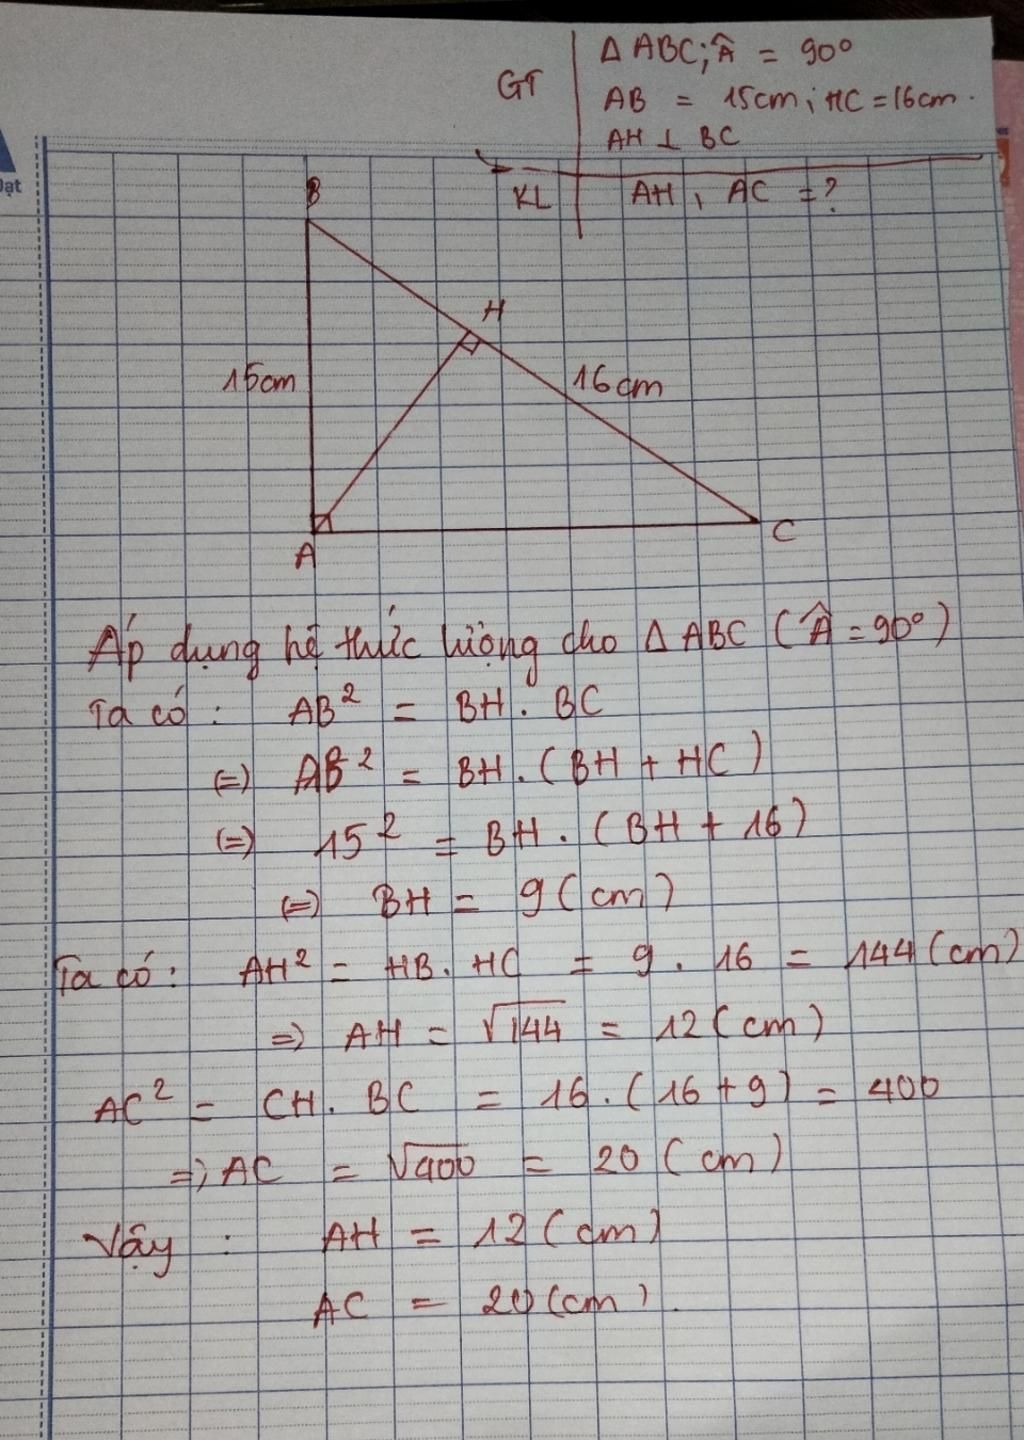 GT
Δ ABC; Â = 90°
AB = 15cm; HC = 16cm.
AH ⊥ BC
KL
AH, AC = ?
B
H
15cm
16cm
A
C
Áp dụng hệ thức lượng cho Δ ABC (Â = 90°)
Ta có: AB² = BH. BC
(=) AB² = BH.(BH + HC)
(=) 15² = BH. (BH + 16)
(=) BH = 9(cm)
Ta có: AH² = HB. HC = 9. 16 = 144(cm)
=) AH = √144 = 12(cm)
AC² = CH. BC = 16.(16+9) = 400
=) AC = √400 = 20(cm)
Vậy: AH = 12(cm)
AC = 20(cm).